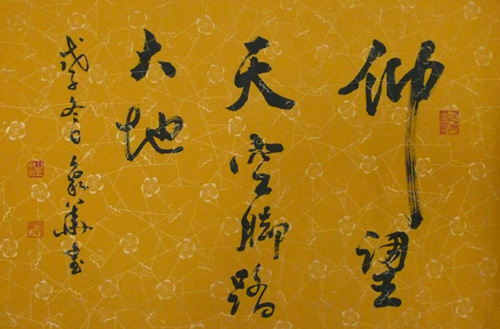 仰望
天空脚踏
大地
戊子冬日華书